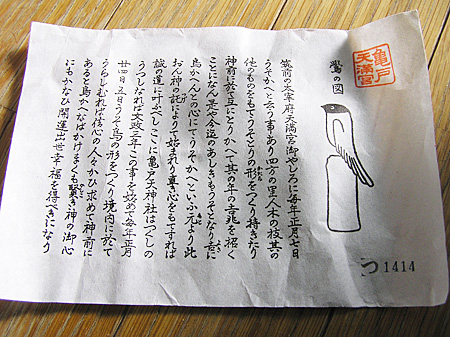 亀戸
天満宮
鷽の図
筑前の太宰府天満宮御やしろに毎年正月七日
うそかへと云ふ事あり四方の里人木の枝其の
他のものをもてうそとりの形をつくり持きたり
神前に於て互にとりかへて其の年の吉兆を招く
ことになん是や今迄のあしきもうそとなり吉に
鳥かへんとの心にてうそかへといふ元より此
おん神の託によりて始まれり心をもてすれば
誠の道に叶ふべしここに亀戸天神社はつくしの
うつしなれば文政三年この事を始めて毎年正月
廿四五日うそ鳥の形をつくり境内に於て
うらしむれば信心の人々かひ求めて神前に
あると鳥かへなばかけまくも賢き神の御心
にもかなひ開運出世幸福を得べきになり
う1414